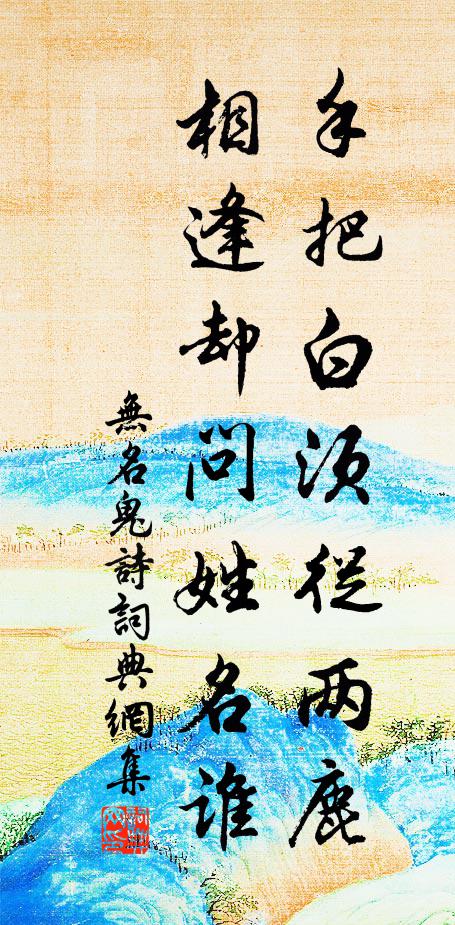 手把白须從两鹿
相逢却問姓名誰
無名鬼詩詞典網集